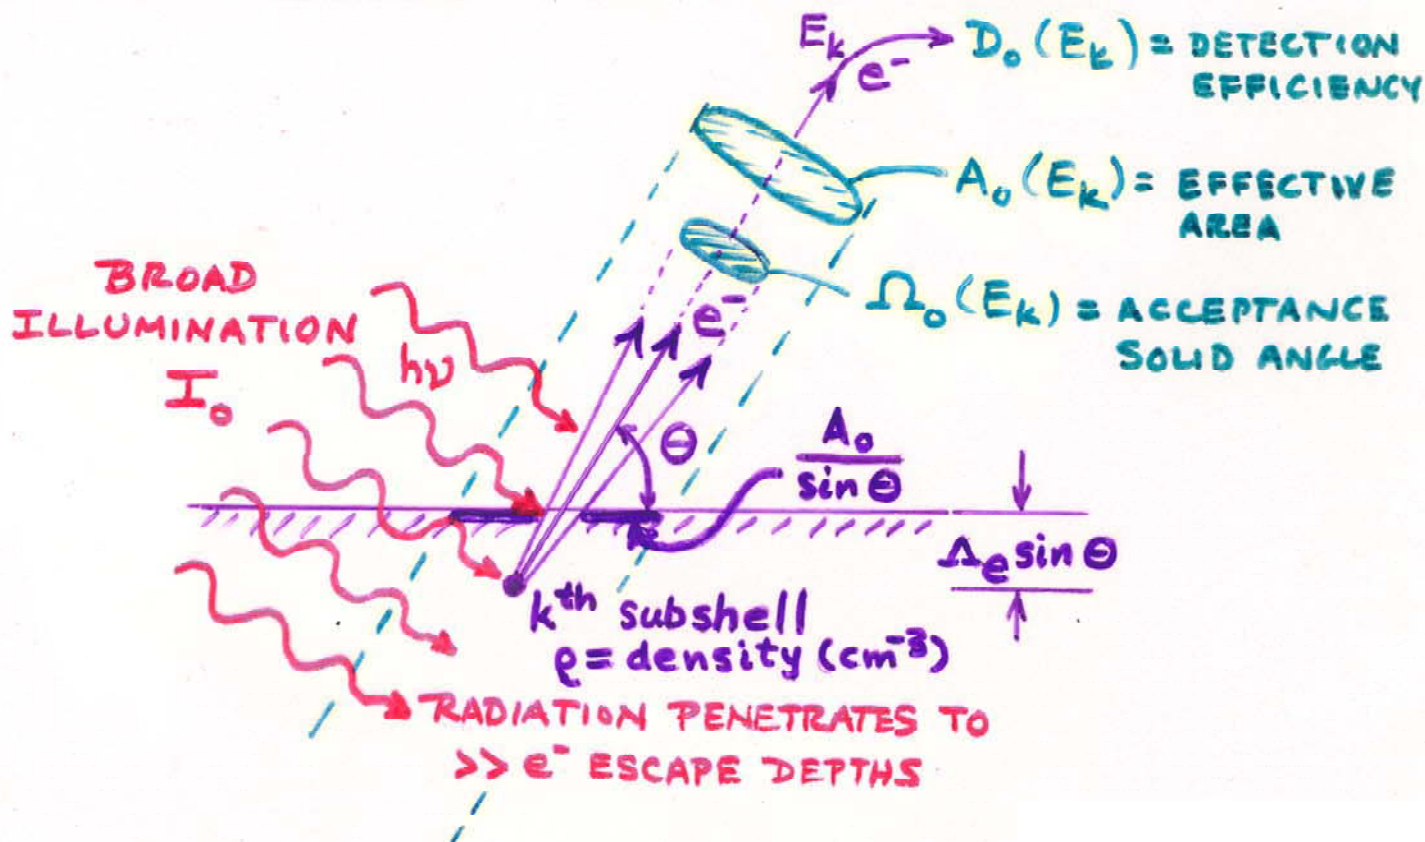 E_k
e⁻
D₀(E_k) = DETECTION
EFFICIENCY
A₀(E_k) = EFFECTIVE
AREA
Ω₀(E_k) = ACCEPTANCE
SOLID ANGLE
BROAD
ILLUMINATION
I₀
hν
e⁻
θ
A₀
sin θ
Λₑ sin θ
kᵗʰ subshell
ρ = density (cm⁻³)
RADIATION PENETRATES TO
>> e⁻ ESCAPE DEPTHS